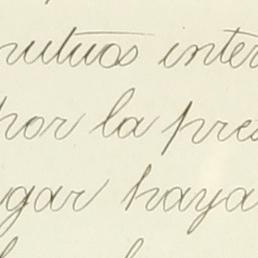 mutuos inter
por la pres
ugar haya